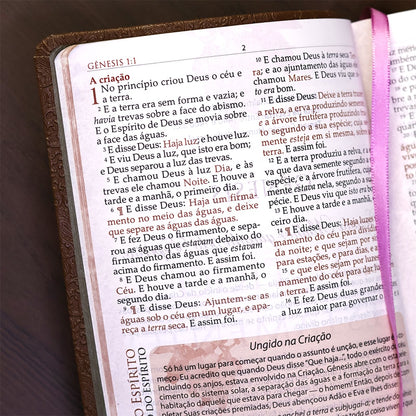 GÊNESIS 1:1
2
A criação
1 No princípio criou Deus o céu e
a terra.
2 E a terra era sem forma e vazia; e
havia trevas sobre a face do abismo.
E o Espírito de Deus se movia sobre
a face das águas.
3 E disse Deus: Haja luz; e houve luz.
4 E viu Deus a luz, que isto era bom;
e Deus separou a luz das trevas.
5 E chamou Deus à luz Dia, e às
trevas ele chamou Noite. E houve a
tarde e a manhã, o primeiro dia.
6 ¶ E disse Deus: Haja um firma-
mento no meio das águas, e deixe
que separe as águas das águas.
7 E fez Deus o firmamento, e sepa-
rou as águas que estavam debaixo do
firmamento das águas que estavam
acima do firmamento. E assim foi.
8 E Deus chamou ao firmamento
Céu. E houve a tarde e a manhã, o
segundo dia.
9 ¶ E disse Deus: Ajuntem-se as
águas sob o céu em um lugar, e apa-
reça a terra seca. E assim foi.
10 E chamou Deus à terra seca
ra; e ao ajuntamento das águas ele
chamou Mares. E Deus viu que
to era bom.
11 E disse Deus: Deixe a terra
a relva, a erva produzindo
e a árvore frutífera produzindo
to segundo a sua espécie,
mente esteja em si mesma, sobre
terra. E assim foi.
12 E a terra produziu a relva,
va que dava semente segundo
espécie, e a árvore frutífera,
mente estava nela, segundo a sua
espécie; e Deus viu que isto era
13 E houve a tarde e a manhã,
ceiro dia.
14 ¶ E disse Deus: Haja luzes
mamento do céu para dividir
da noite; e que sejam por
para estações, e para dias, e
15 e que eles sejam por luzes
mamento do céu para dar
a terra. E assim foi.
16 E fez Deus duas grandes
a luz maior para governar o
Ungido na Criação
Só há um lugar para começar quando o assunto é unção, e esse lugar é
meço. Eu acredito que quando Deus disse "Que haja..", todo o exército
incluindo os anjos, estava envolvido na Criação. Gênesis abre com o
mento do sistema solar, a separação das águas e a formação da terra para
habitação daquele que estava para chegar — o homem! Então, depois de
pletar Suas criações premiadas, Deus abençoou Adão e Eva e lhes
O ESPÍRITO
DO ESPÍRITO